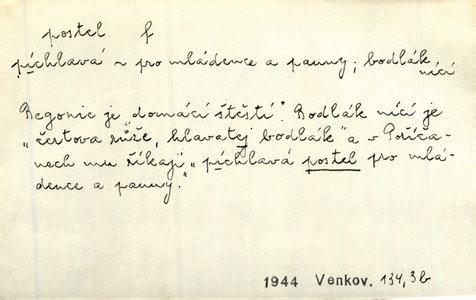 postel f
píchlavá ~ pro mládence a panny; bodlák
nící
Begonie je „domácí štěstí“. Bodlák nící je
„čertova růže, hlavatej bodlák“ a v Poříča-
nech mu říkají „píchlavá postel pro mlá-
dence a panny.“
1944 Venkov. 134,3b